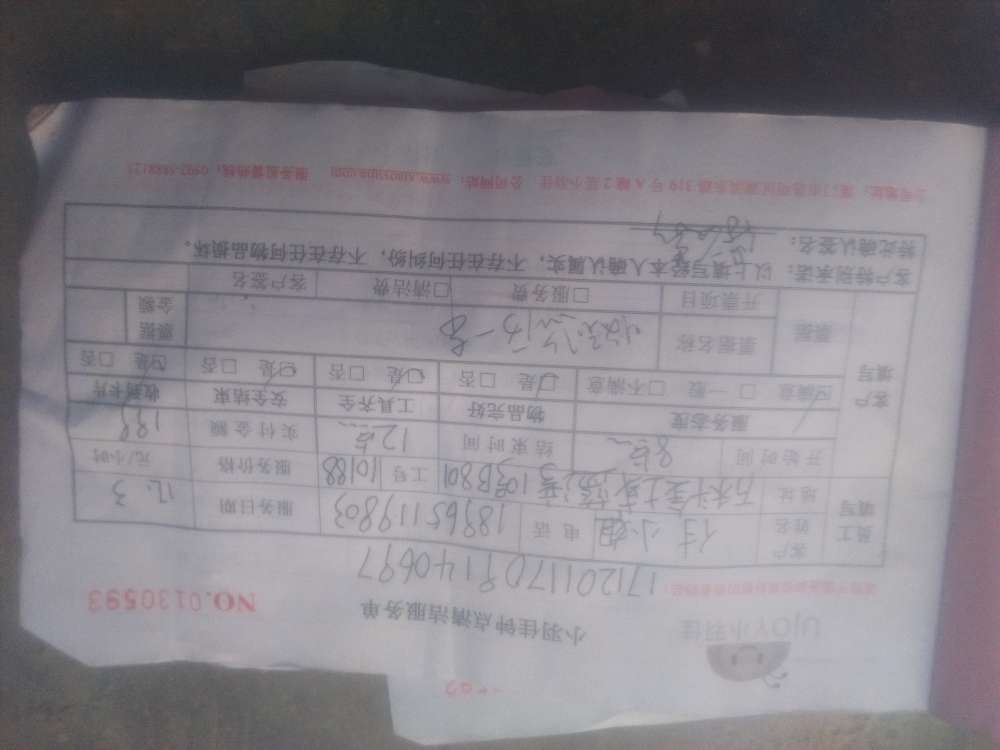 UJOY小羽佳
小羽佳钟点清洁服务单
NO.0130593
1712011709140697
员工填写
客户姓名 任小姐 电话 18965119803 服务日期 12.3
地址 工号 110188 服务价格 元/小时
客户填写
开始时间 8点 结束时间 12点 实付金额 188
服务态度 物品完好 工具齐全 安全结束 收到卡片
☑满意 □一般 □不满意 ☑是 □否 ☑是 □否 ☑是 □否 ☑是 □否
票据 票据名称 票据金额
开票项目 □服务费 □清洁费 客户签名
客户特别承诺：以上填写经本人确认属实，不存在任何纠纷，不存在任何物品损坏。
特此确认签名：
公司网站：www.xiaoyujia.com 服务监督热线：